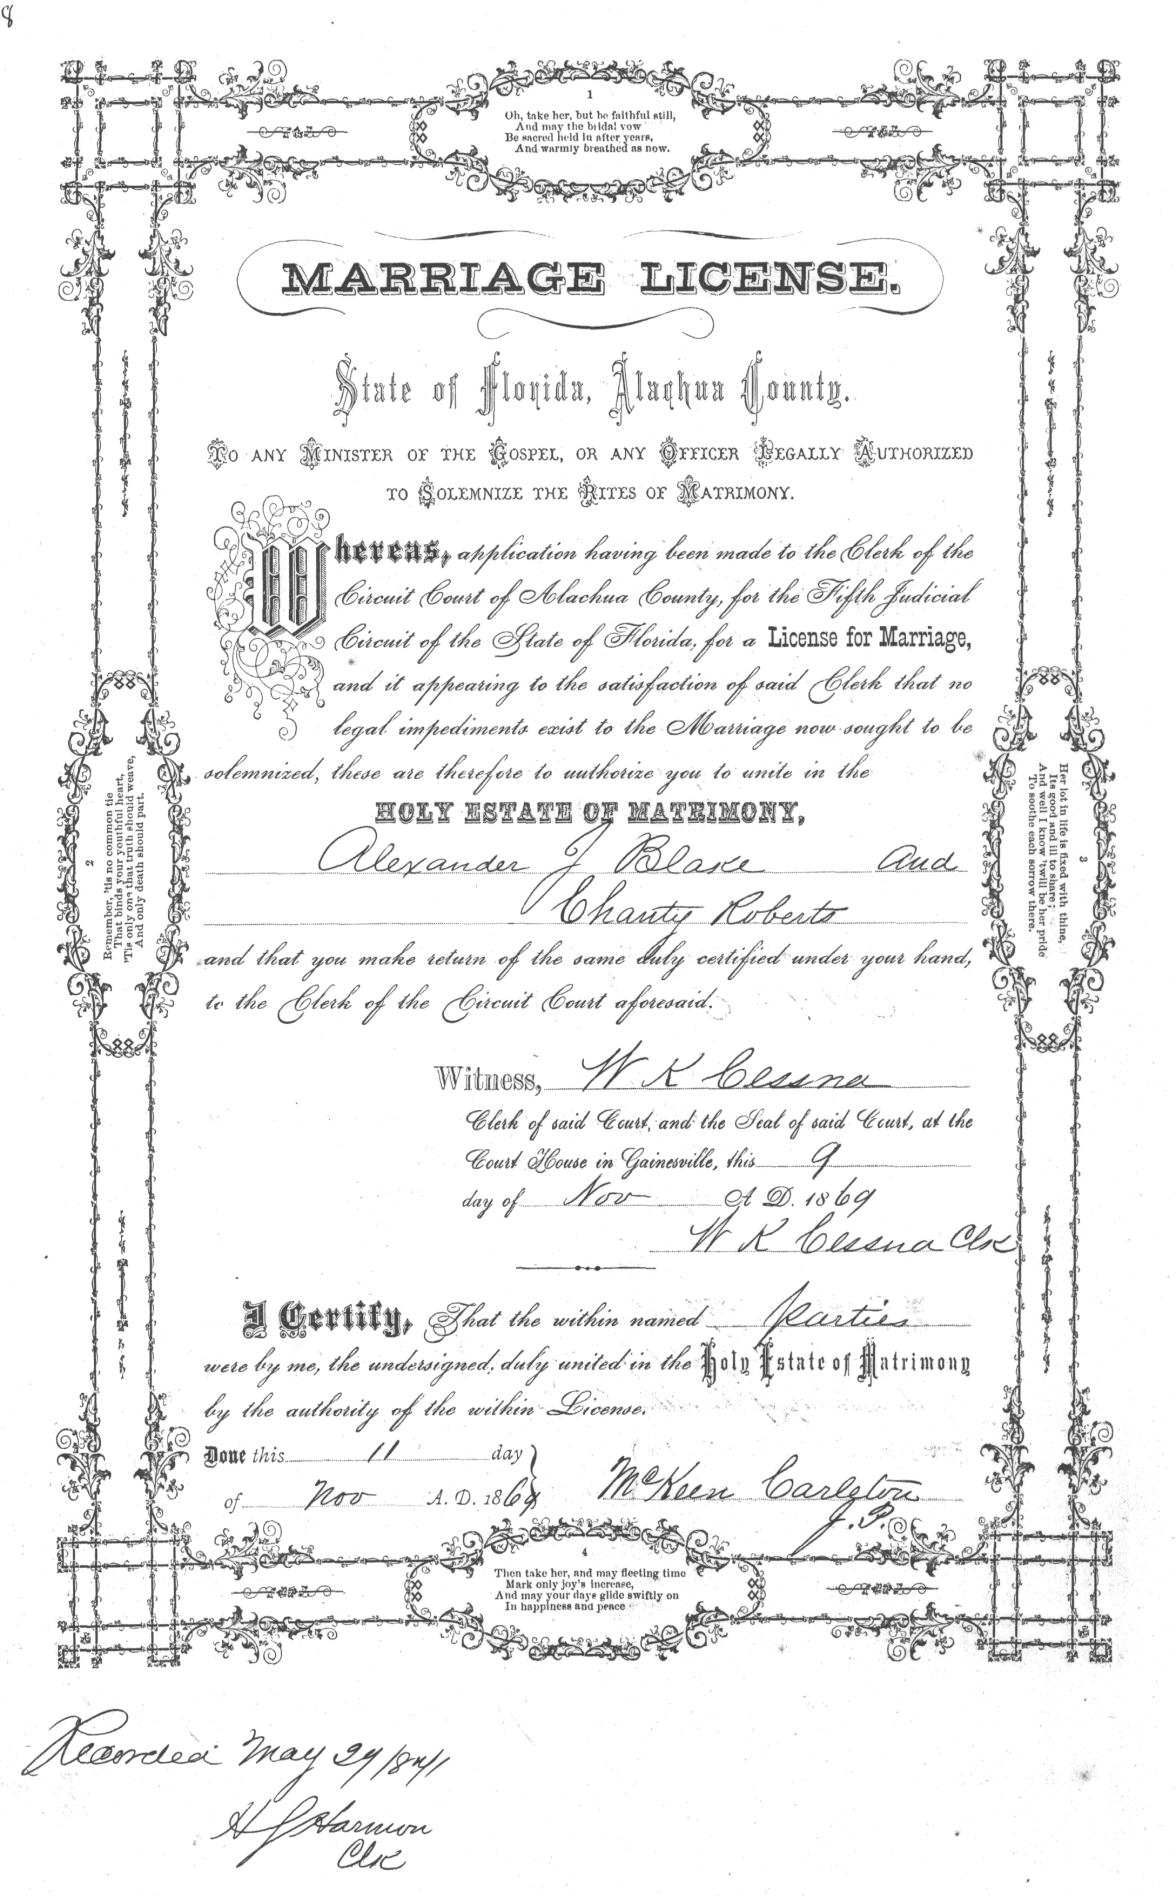 8
1
Oh, take her, but be faithful still,
And may the bridal vow
Be sacred held in after years,
And warmly breathed as now.
MARRIAGE LICENSE.
State of Florida, Alachua County.
TO ANY MINISTER OF THE GOSPEL, OR ANY OFFICER LEGALLY AUTHORIZED
TO SOLEMNIZE THE RITES OF MATRIMONY.
Whereas, application having been made to the Clerk of the
Circuit Court of Alachua County, for the Fifth Judicial
Circuit of the State of Florida, for a License for Marriage,
and it appearing to the satisfaction of said Clerk that no
legal impediments exist to the Marriage now sought to be
solemnized, these are therefore to authorize you to unite in the
HOLY ESTATE OF MATRIMONY,
Alexander J Blake and
Charity Roberts
and that you make return of the same duly certified under your hand,
to the Clerk of the Circuit Court aforesaid.
2
Remember, 'tis no common tie
That binds your youthful heart,
'Tis only one that truth should weave,
And only death should part.
3
Her lot in life is fixed with thine,
Its good and ill to share;
And well I know 'twill be her pride
To soothe each sorrow there.
Witness, W K Cessna
Clerk of said Court, and the Seal of said Court, at the
Court House in Gainesville, this 9
day of Nov A D. 1869
W K Cessna Clk
I Certify, That the within named parties
were by me, the undersigned, duly united in the Holy Estate of Matrimony
by the authority of the within License.
Done this 11 day
of Nov A. D. 1869
McKeen Carleton
J. P.
4
Then take her, and may fleeting time
Mark only joy's increase,
And may your days glide swiftly on
In happiness and peace
Recorded May 29
H J Harmon
Clk